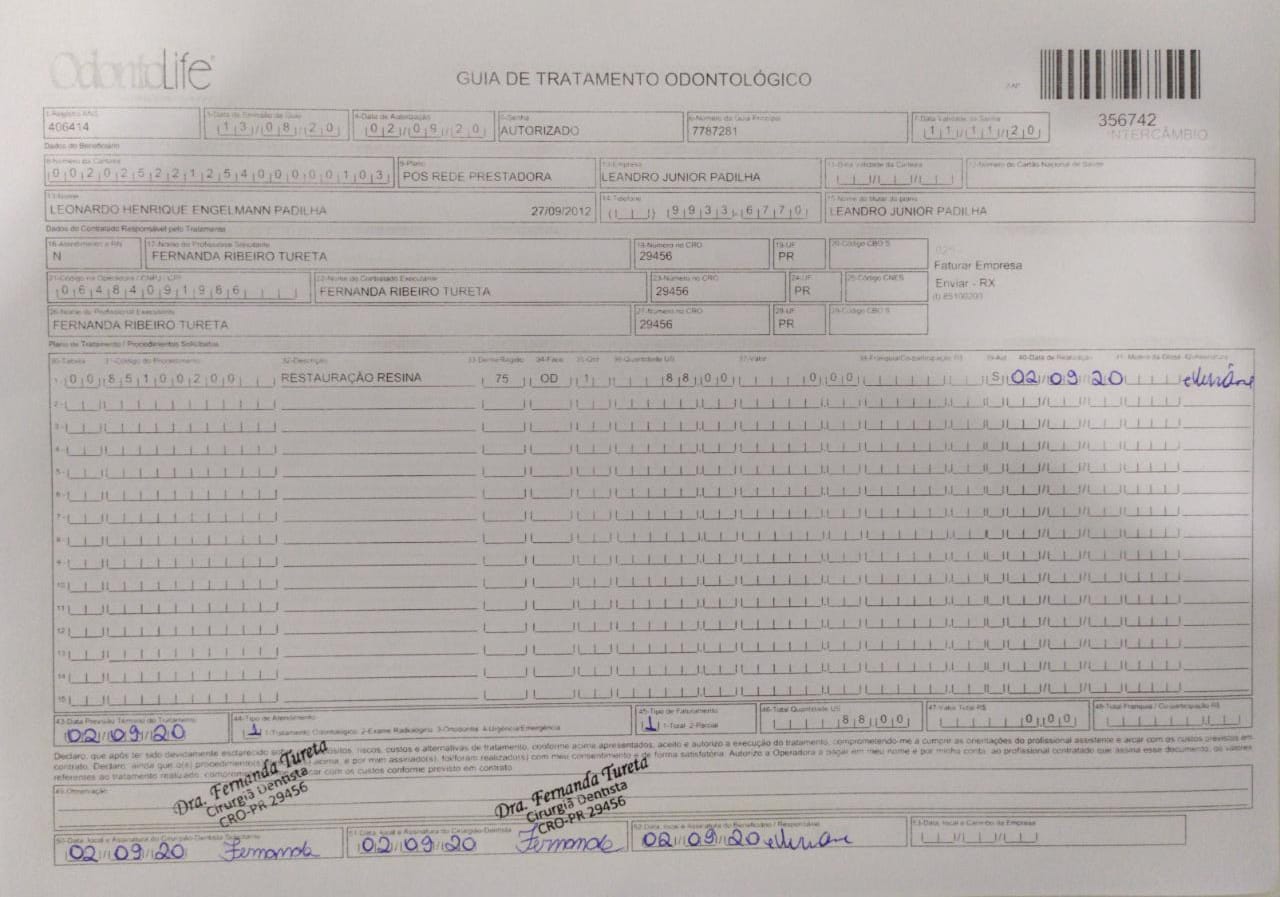 OdontoLife
GUIA DE TRATAMENTO ODONTOLÓGICO
356742
INTERCÂMBIO
1-Registro ANS 3-Data de Emissão da Guia 4-Data de Autorização 5-Senha 6-Número da Guia Principal 7-Data Validade da Senha
406414 13/08/20 02/09/20 AUTORIZADO 7787281 11/11/20
Dados do Beneficiário
8-Número da Carteira 9-Plano 10-Empresa 11-Data Validade da Carteira 12-Número do Cartão Nacional de Saúde
00202522125400000103 POS REDE PRESTADORA LEANDRO JUNIOR PADILHA
13-Nome 14-Telefone 15-Nome do titular do plano
LEONARDO HENRIQUE ENGELMANN PADILHA 27/09/2012 ( ) 9933-6770 LEANDRO JUNIOR PADILHA
Dados do Contratado Responsável pelo Tratamento
16-Atendimento a RN 17-Nome do Profissional Solicitante 18-Número no CRO 19-UF 20-Código CBO S
N FERNANDA RIBEIRO TURETA 29456 PR
025 -
Faturar Empresa
Enviar - RX
21-Código na Operadora / CNPJ / CPF 22-Nome do Contratado Executante 23-Número no CRO 24-UF 25-Código CNES
06484091986 FERNANDA RIBEIRO TURETA 29456 PR
26-Nome do Profissional Executante 27-Número no CRO 28-UF 29-Código CBO S
FERNANDA RIBEIRO TURETA 29456 PR
Plano de Tratamento / Procedimentos Solicitados
30-Tabela 31-Código do Procedimento 32-Descrição 33-Dente/Região 34-Face 35-Qtd 36-Quantidade US 37-Valor 38-Franquia/Co-participação R$ 39-Aut 40-Data de Realização 41-Motivo da Glosa 42-Assinatura
1- 00 85100200 RESTAURAÇÃO RESINA 75 OD 1 88,00 0,00 S 02/09/20
2-
3-
4-
5-
6-
7-
8-
9-
10-
11-
12-
13-
14-
15-
43-Data Previsão Término do Tratamento 44-Tipo de Atendimento 45-Tipo de Faturamento 46-Total Quantidade US 47-Valor Total R$ 48-Total Franquia / Co-participação R$
02/09/20 1 1-Tratamento Odontológico 2-Exame Radiológico 3-Ortodontia 4-Urgência/Emergência 1 1-Total 2-Parcial 88,00 0,00
Declaro, que após ter sido devidamente esclarecido sobre os propósitos, riscos, custos e alternativas de tratamento, conforme acima apresentados, aceito e autorizo a execução do tratamento, comprometendo-me a cumprir as orientações do profissional assistente e arcar com os custos previstos em
contrato. Declaro, ainda que o(s) procedimento(s) acima, e por mim assinado(s), foi/foram realizado(s) com meu consentimento e de forma satisfatória. Autorizo a Operadora a pagar em meu nome e por minha conta, ao profissional contratado que assina esse documento, os valores
referentes ao tratamento realizado, comprometendo-me a arcar com os custos conforme previsto em contrato.
49-Observação
Dra. Fernanda Tureta
Cirurgiã Dentista
CRO-PR 29456
Dra. Fernanda Tureta
Cirurgiã Dentista
CRO-PR 29456
50-Data, local e Assinatura do Cirurgião-Dentista Solicitante 51-Data, local e Assinatura do Cirurgião-Dentista 52-Data, local e Assinatura do Beneficiário / Responsável 53-Data, local e Carimbo da Empresa
02/09/20 Fernanda 02/09/20 Fernanda 02/09/20